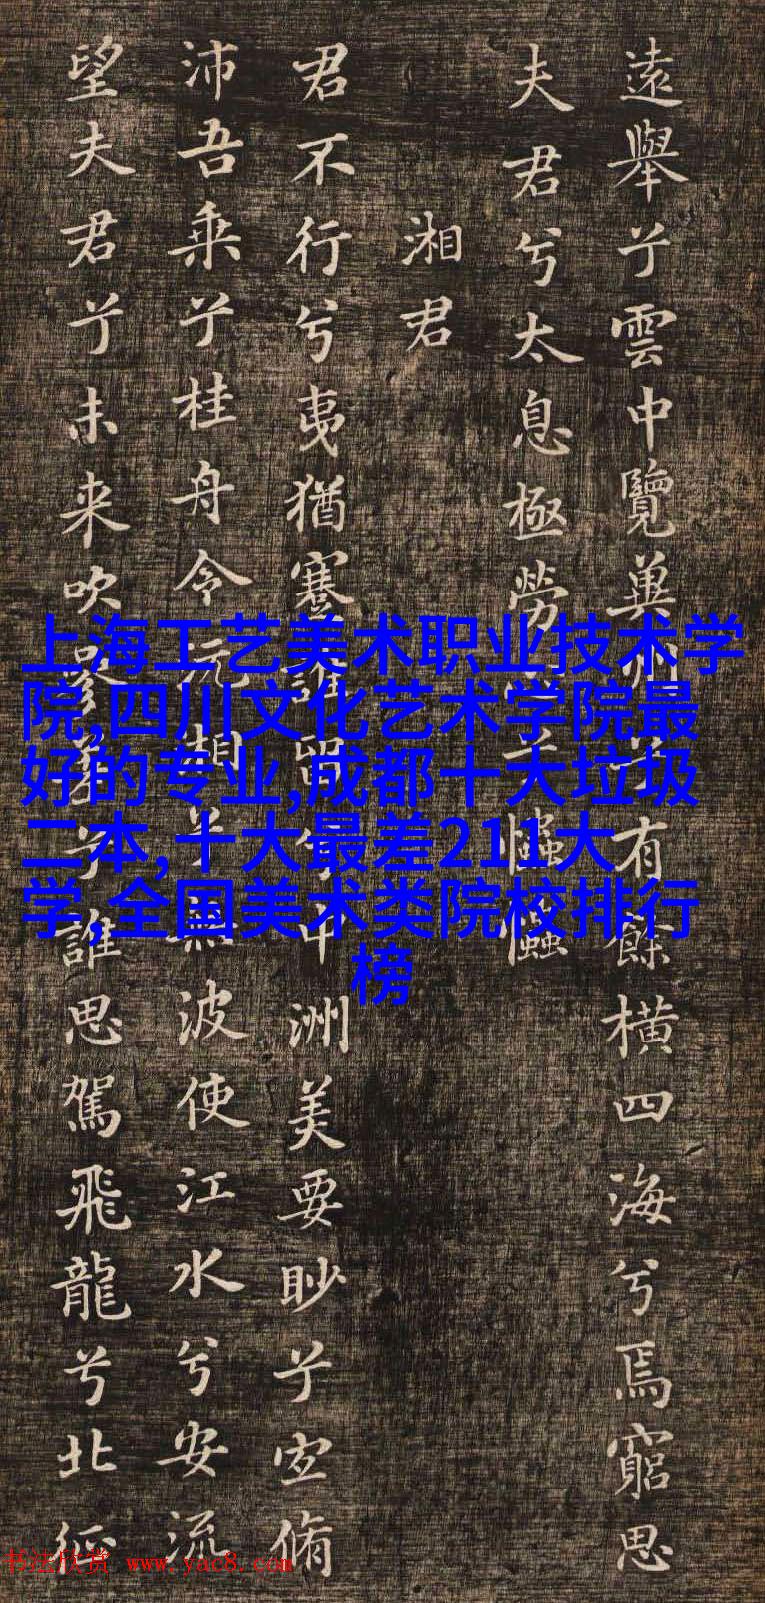 遠舉兮雲中覽冀州兮有餘橫四海兮焉窮思
夫君兮太息極勞心兮𢥞𢥞
湘君
君不行兮夷猶蹇誰留兮中洲美要眇兮宜脩
沛吾乘兮桂舟令沅湘兮無波使江水兮安流
望夫君兮未来吹參差兮誰思駕飛龍兮北征
上海工艺美术职业技术学
院,四川文化艺术学院最
好的专业,成都十大垃圾
二本,十大最差211大
学,全国美术类院校排行
榜
书法欣赏 www.yac8.com